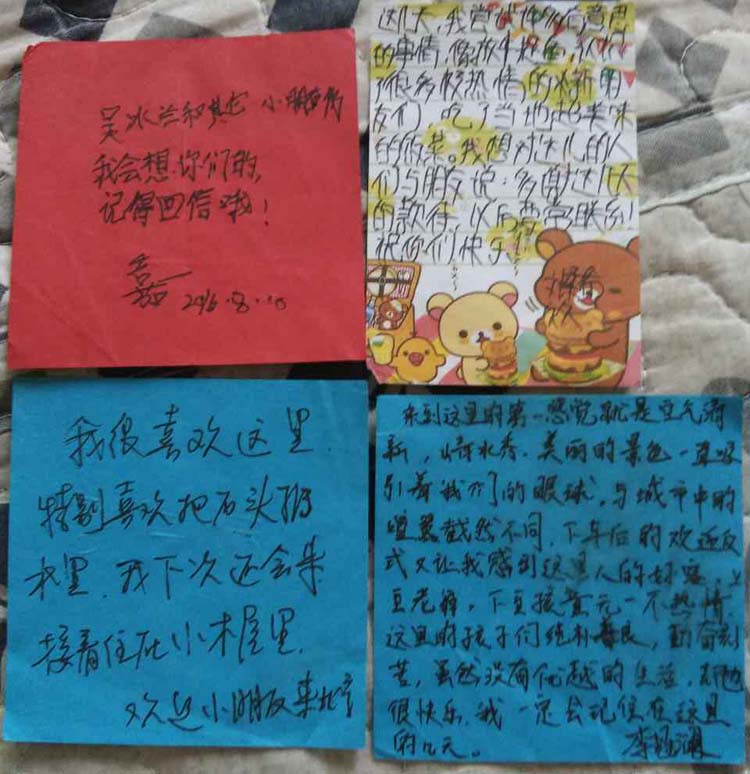 吴冰兰和其它小朋友们
我会想你们的,
记得回信哦!
2016.8.10
这几天,我尝试
的事情,像放牛
了很多较热情的新朋
友们,吃了当地超美味
的饭菜。我想对这儿的人
们与朋友说:多谢这几天
的款待,以后要常联系!
祝你们快乐!
我很喜欢这里.
特别喜欢把石头扔
水里.我下次还会来
接着住在小木屋里.
欢迎小朋友来北京
来到这里的第一感觉就是空气清
新,山清水秀.美丽的景色一直吸
引着我们的眼球,与城市中的
喧嚣截然不同.下车后的欢迎仪
式又让我感到这里人的好客.上
至老爷,下至孩童无一不热情
这里的孩子们纯朴善良,勤奋刻
苦,虽然没有优越的生活,却也
很快乐.我一定会记住在这里
的几天。